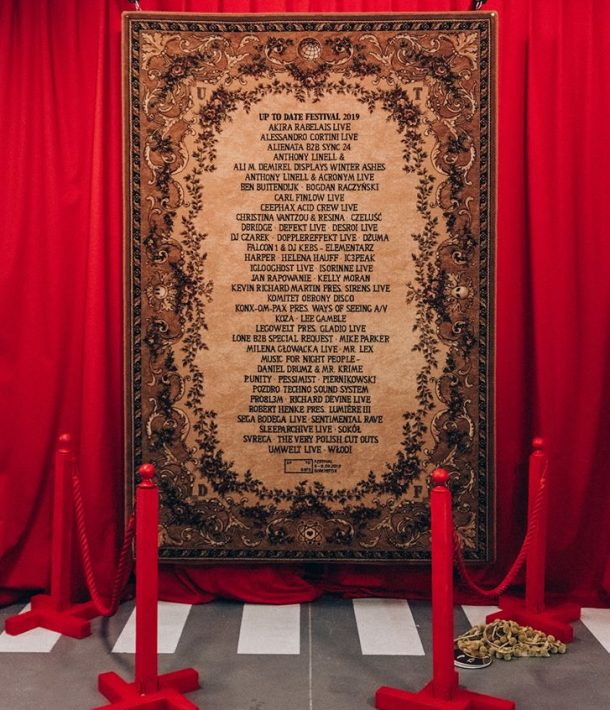 U T
UP TO DATE FESTIVAL 2019
AKIRA RABELAIS LIVE
ALESSANDRO CORTINI LIVE
ALIENATA B2B SYNC 24
ANTHONY LINELL &
ALI M. DEMIREL DISPLAYS WINTER ASHES
ANTHONY LINELL & ACRONYM LIVE
BEN BUITENDIJK · BOGDAN RACZYŃSKI
CARL FINLOW LIVE
CEEPHAX ACID CREW LIVE
CHRISTINA VANTZOU & RESINA · CZELUŚĆ
DBRIDGE · DEFEKT LIVE · DESROI LIVE
DJ CZAREK · DOPPLEREFFEKT LIVE · DŻUMA
FALCON1 & DJ KEBS - ELEMENTARZ
HARPER · HELENA HAUFF · IC3PEAK
IGLOOGHOST LIVE · ISORINNE LIVE
JAN RAPOWANIE · KELLY MORAN
KEVIN RICHARD MARTIN PRES. SIRENS LIVE
KOMITET OBRONY DISCO
KONX-OM-PAX PRES. WAYS OF SEEING A/V
KOZA · LEE GAMBLE
LEGOWELT PRES. GLADIO LIVE
LONE B2B SPECIAL REQUEST · MIKE PARKER
MILENA GŁOWACKA LIVE · MR. LEX
MUSIC FOR NIGHT PEOPLE -
DANIEL DRUMZ & MR. KRIME
P.UNITY · PESSIMIST · PIERNIKOWSKI
POZDRO TECHNO SOUND SYSTEM
PRO8L3M · RICHARD DEVINE LIVE
ROBERT HENKE PRES. LUMIÈRE III
SEGA BODEGA LIVE · SENTIMENTAL RAVE
SLEEPARCHIVE LIVE · SOKÓŁ
SVRECA · THE VERY POLISH CUT OUTS
UMWELT LIVE · WŁODI
UP TO
DATE
FESTIVAL
D F